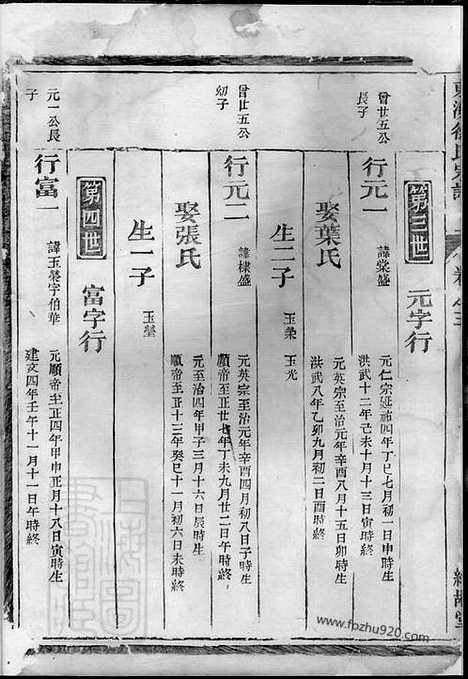 第三世 元字行
曾世五公長子
行元一 諱棠盛 元仁宗延祐四年丁巳七月初一日申時生
洪武十二年己未十月十三日寅時終
娶葉氏 元英宗至治元年辛酉八月十五日卯時生
洪武八年乙卯九月初二日酉時終
生二子 玉榮 玉光
曾世五公幼子
行元二 諱棣盛 元英宗至治元年辛酉四月初八日子時生
順帝至正廿七年丁未九月廿二日午時終
娶張氏 元至治四年甲子三月十六日辰時生
順帝至正十三年癸巳十一月初六日未時終
生一子 玉瑩
第四世 富字行
元一公長子
行富一 諱玉榮字伯華 元順帝至正四年甲申正月十八日寅時生
建文四年壬午十一月十一日午時終
www.fpzhu920.com